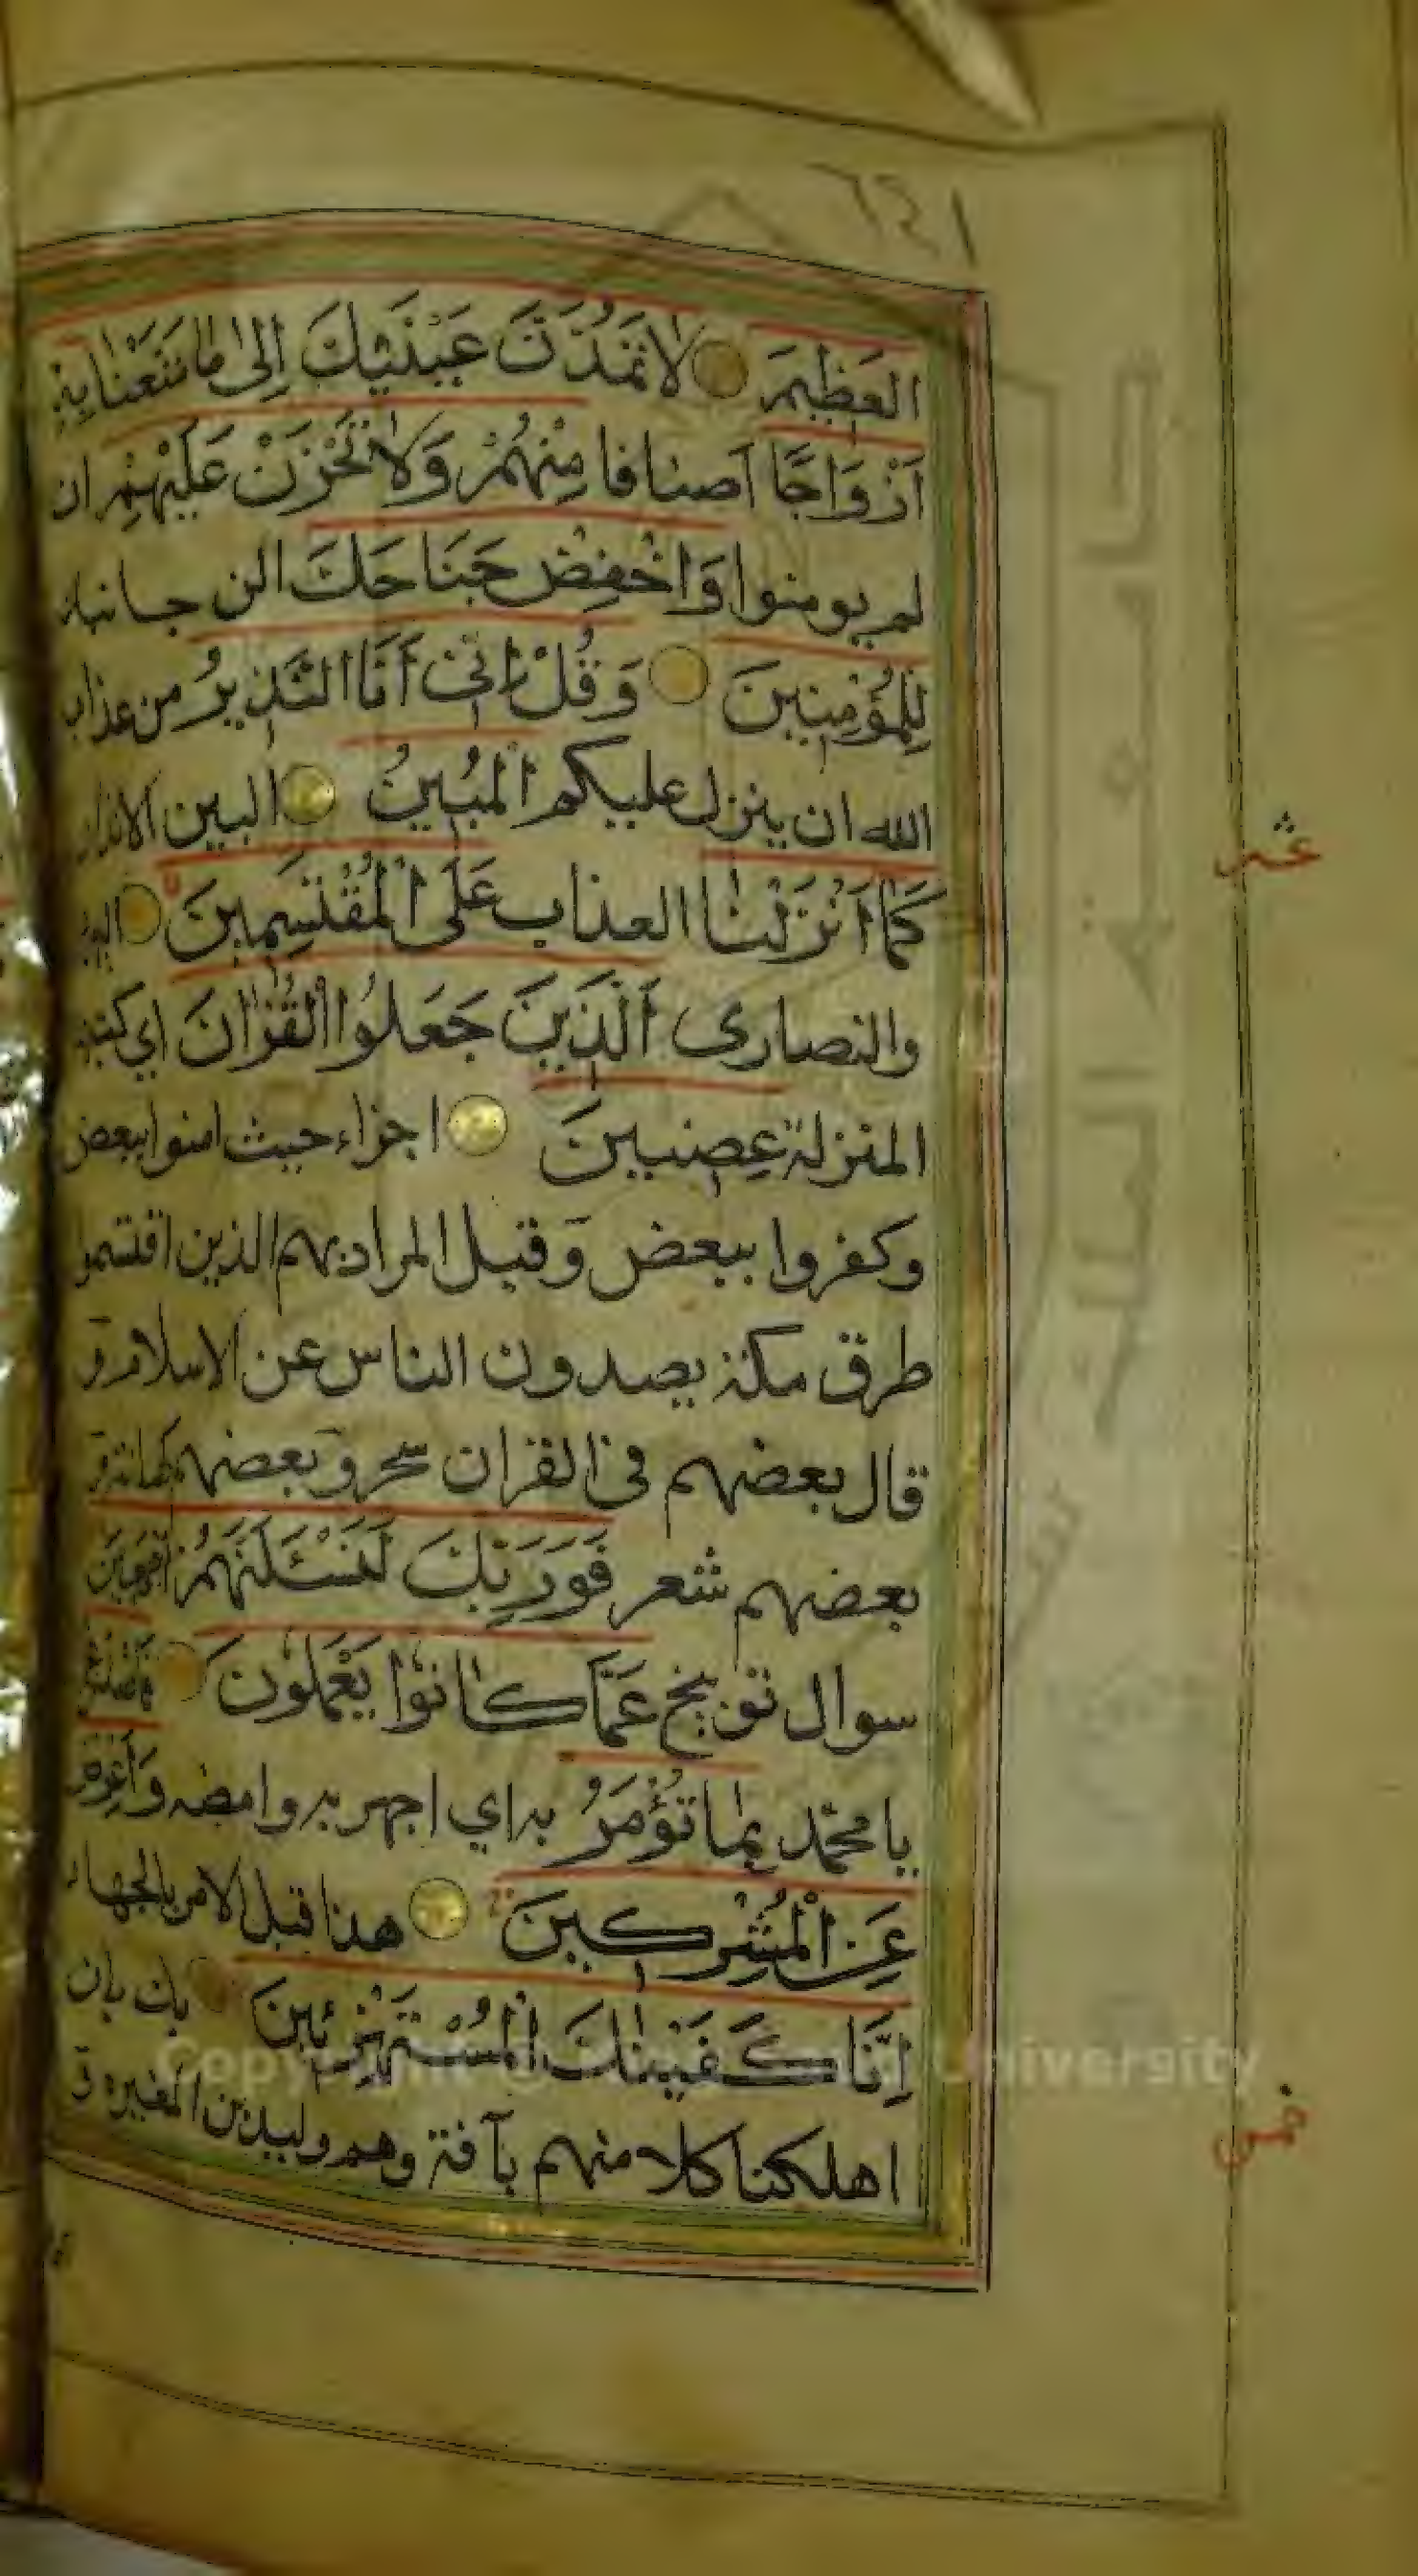 ١٦٤
العَظِيمَ لَا تَمُدَّنَّ عَيْنَيْكَ إِلَى مَا مَتَّعْنَا بِهِ
أَزْوَاجًا اصنافا مِنْهُمْ وَلَا تَحْزَنْ عَلَيْهِمْ ان
لم يومنوا وَاخْفِضْ جَنَاحَكَ الن جانبك
لِلْمُؤْمِنِينَ وَقُلْ إِنِّي أَنَا النَّذِيرُ من عذاب
الله ان ينزل عليكم الْمُبِينُ البين الانذار
عشر
كَمَا أَنْزَلْنَا العذاب عَلَى الْمُقْتَسِمِينَ اليهود
والنصارى الَّذِينَ جَعَلُوا الْقُرْآنَ اي كتبهم
المنزلة عِضِينَ اجزاء حيث امنوا ببعض
وكفروا ببعض وقيل المراد بهم الذين اقتسموا
طرق مكة يصدون الناس عن الاسلام و
قال بعضهم في القران سحر وبعضهم كهانة و
بعضهم شعر فَوَرَبِّكَ لَنَسْئَلَنَّهُمْ أَجْمَعِينَ
سوال توبيخ عَمَّا كَانُوا يَعْمَلُونَ فَاصْدَعْ
يا محمد بِمَا تُؤْمَرُ به اي اجهر به وامضه وَأَعْرِضْ
عَنِ الْمُشْرِكِينَ هذا قبل الامر بالجهاد
إِنَّا كَفَيْنَاكَ الْمُسْتَهْزِئِينَ بك بان
خمس
اهلكنا كلا منهم بآفة وهم وليد بن المغيرة و